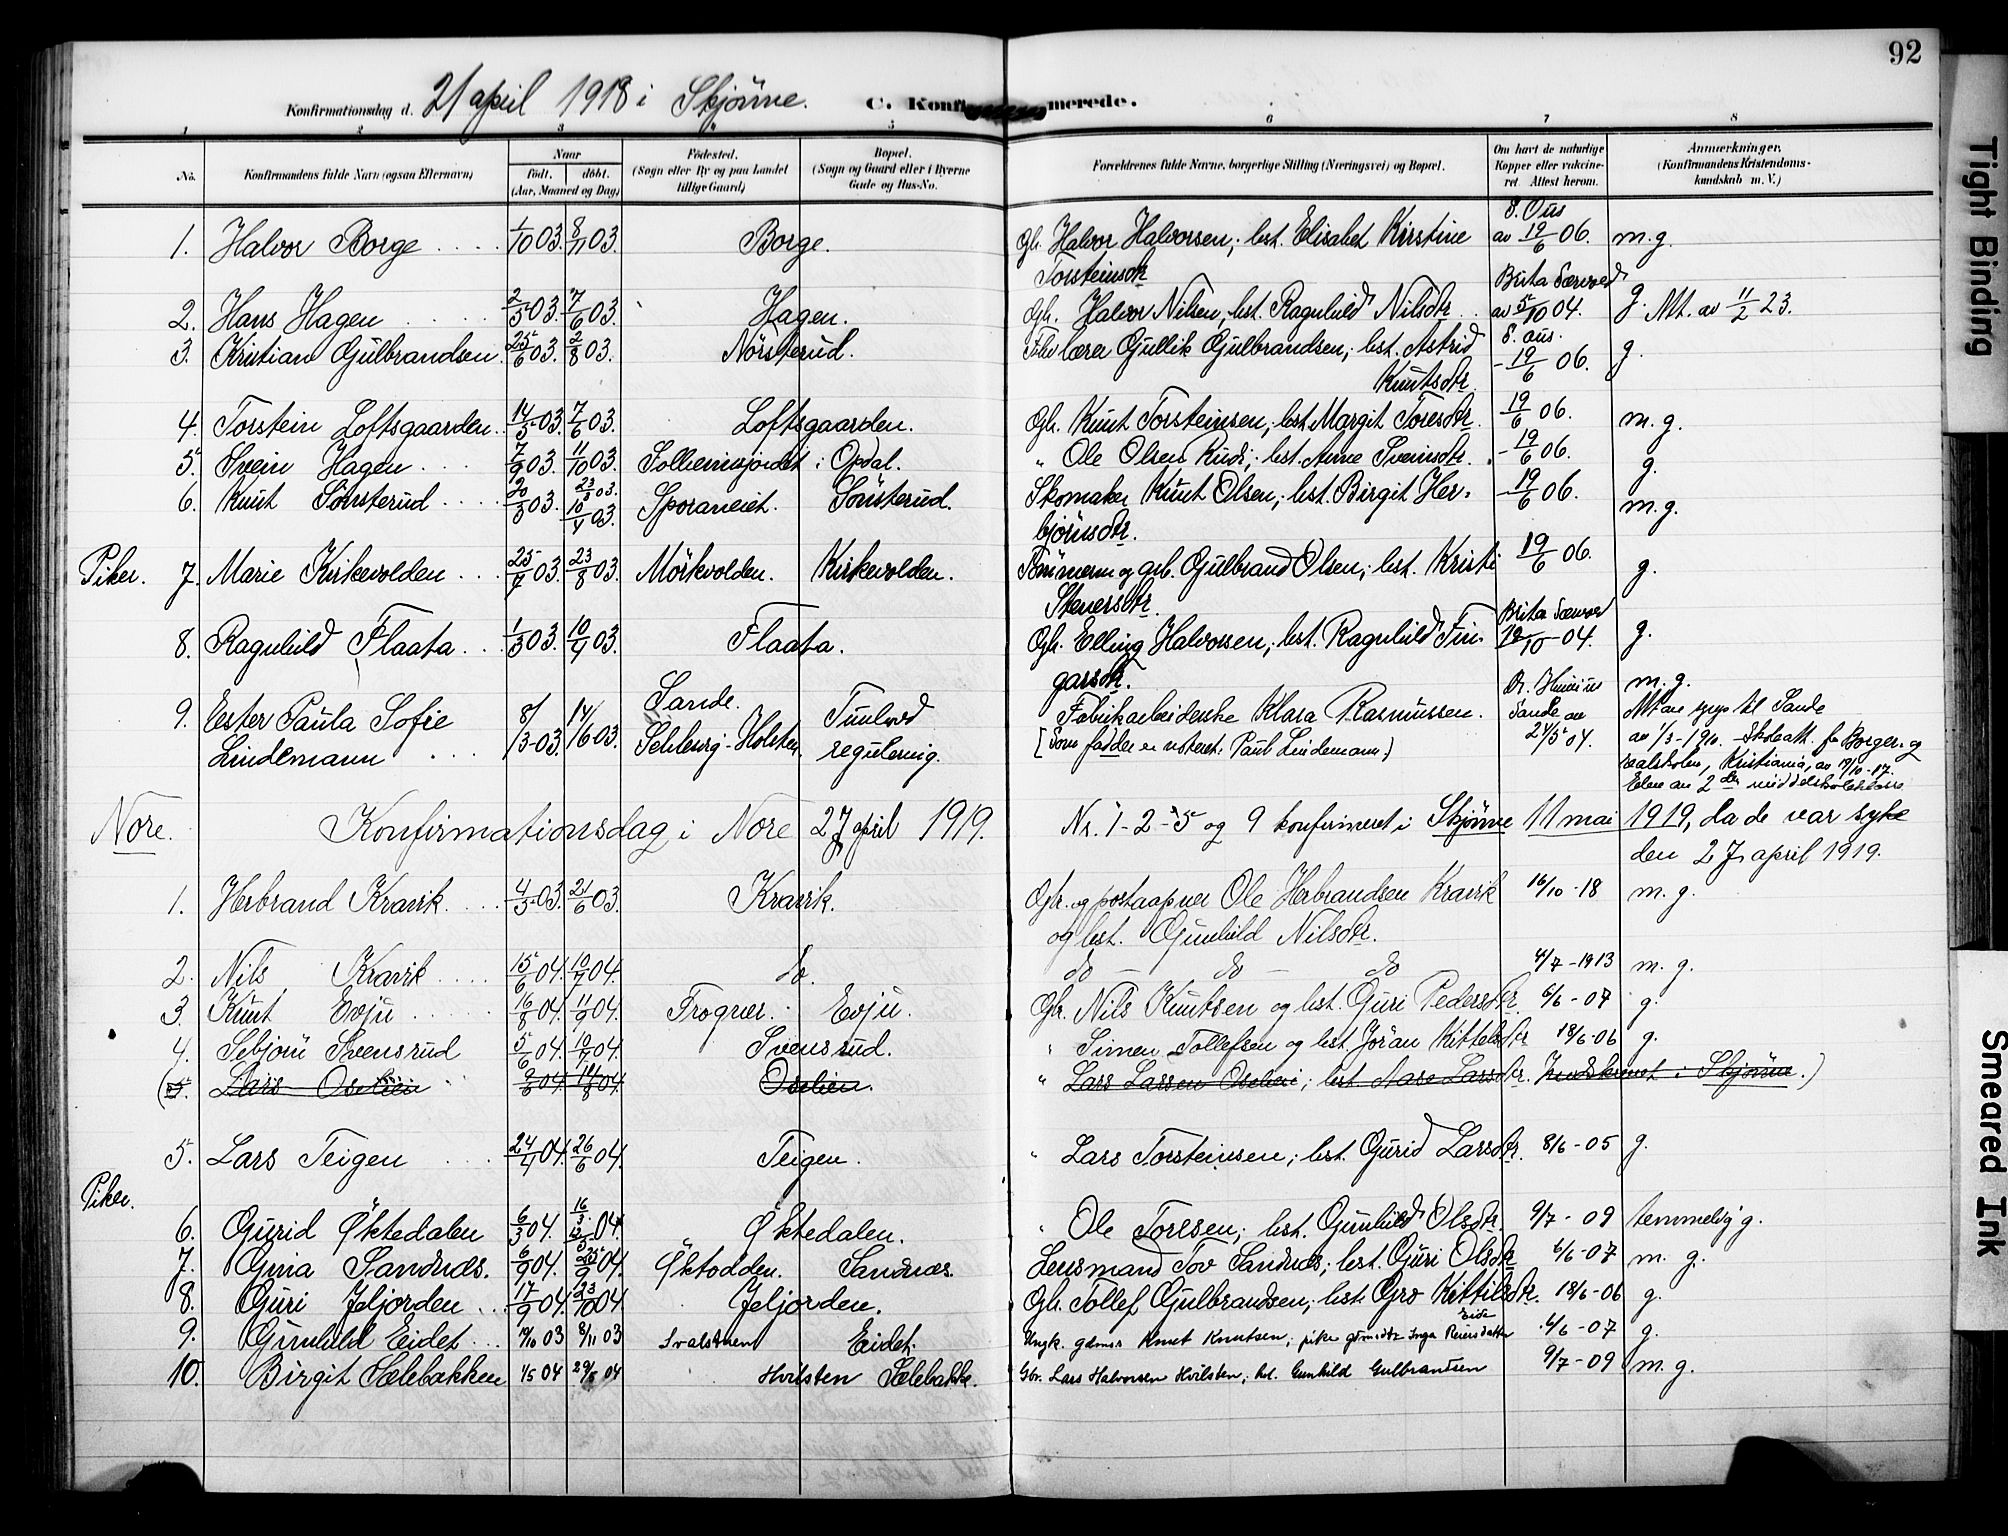 92
Konfirmationsdag d. 21 april 1918 i Skjönne. C. Konfirmerede.
1 2 3 4 5 6 7 8
No. Konfirmandens fulde Navn (ogsaa Efternavn) Naar født. døbt. (Aar, Maaned og Dag) Fødested. (Sogn eller By og paa Landet tillige Gaard) Bopæl. (Sogn og Gaard eller i Byerne Gade og Hus-No. Forældrenes fulde Navne, borgerlige Stilling (Næringsvei) og Bopæl. Om havt de naturlige Kopper eller vaccineret. Attest herom. Anmærkninger. (Konfirmandens Kristendomskundskab m. V.)
1. Halvor Borge 1/10 03. 8/11 03. Borge. Gbr. Halvor Halvorsen, hst. Elisabet Kirstine Torsteinsdtr S. Ous av 19/6 06. m. g.
2. Hans Hagen 2/5 03. 7/6 03. Hagen. Gbr. Halvor Nilsen, hst. Ragnhild Nilsdtr. Brita Særvold av 5/10 04. g. Att. av 11/2 23.
3. Kristian Gulbrandsen 25/6 03. 2/8 03. Nörsterud. lærer Gullik Gulbrandsen; hst. Astrid Knutsdtr. S. Ous. - 19/6 06. g.
4. Torstein Loftsgaarden. 14/5 03. 7/6 03. Loftsgaarden. Gbr. Knut Torsteinsen, hst. Margit Toresdtr. - 19/6 06. m. g.
5. Svein Hagen 7/9 03. 11/10 03. i Opdal. " Ole Olsen Rudi; hst. Anne Sveinsdtr. - 19/6 06. g.
6. Knut Sönsterud 20/3 03. 23/3 03. 10/4 03. Sporaneiet. Sönsterud. Skomaker Knut Olsen; hst. Birgit Herbjörnsdtr. - 19/6 06. m. g.
Piker. 7. Marie Kirkevolden 25/7 03. 23/8 03. Mörkvolden. Kirkevolden. Tömmerm og grb. Gulbrand Olsen; hst. Kristi Stenersdtr. 19/6 06. g.
8. Ragnhild Flaata 1/3 03. 10/4 03. Flaata. Gbr. Elling Halvorsen; hst. Ragnhild Fingarsdtr. Brita Særvold 19/10 - 04. g.
9. Ester Paula Sofie Lindemann 8/3-03. 14/6 03. Sande. Schleswig-Holsten Tunhovd regulering. Fabrikarbeiderske Klara Rasmussen. [Som fadder er noteret: Paul Lindemann.) Dr. Sande av 24/5 04. m. g.
til Sande av 1/3-1910. Skoleatt. fr Borger- og realskolen, Kristiania, av 19/10-17. Elev av 2den middelskoleklasse
Nore. Konfirmationsdag i Nore 27 april 1919. Nr. 1-2-5 og 9 konfirmeret i Skjönne 11 mai 1919, da de var syke den 27 april 1919.
1. Herbrand Kravik 4/5 03. 21/6 03. Kravik. Gbr. og postaapner Ole Herbrandsen Kravik og hst. Gunhild Nilsdtr. 16/10-18 m. g.
2. Nils Kravik 15/6 04. 10/7 04. do. do - do - do 4/7-1913 m. g.
3. Knut Evju 16/8 04. 11/9 04. Frogner. Evju. Gbr. Nils Knutsen og hst. Guri Pedersdtr. 6/6-07 g.
4. Sebjörn Svensrud 5/6 04. 10/7 04. Svensrud. " Simen Tollefsen og hst. Jöran Kittelsdtr 18/6-06 g.
(5. Lars Oselien 9/6 04. 14/8 04. Oselien. " Lars Larsen Oselien; hst. Aase Larsdtr. Indskrevet i Skjönne.)
5. Lars Teigen 24/4 04. 26/6 04. Teigen. " Lars Torsteinsen; hst. Gurid Larsdtr. 8/6-05 g.
Piker.
6. Gurid Øktedalen 6/3 04. 16/3 04. Øktedalen. " Ole Toresen; hst. Gunhild Olsdtr. 9/7-09 temmelig g.
7. Gina Sandnæs. 6/9 04. 25/9 04. Øktodden. Sandnæs. Lensmand Tov Sandnæs; hst. Guri Olsdtr 6/6-07 m. g.
8. Guri Jeljorden 17/9 04. 23/10 04. Jeljorden. Gbr. Tollef Gulbrandsen; hst. Gro Kittilsdtr. 18/6-06 g.
9. Gunhild Eidet 19/10 03 8/11 03 Eidet. Ungk. gdms. Knut Knutsen; pike gdmsdtr Inga Reiersdatter Eide 6/6-07 g.
10. Birgit Sælebakken 1/5 04 29/5 04 Hvilsten Sælebakk. Gbr. Lars Halvorsen Hvilsten, hst. Gunhild Gulbrandsen 9/7-09 m. g.
Tight Binding
Smeared Ink